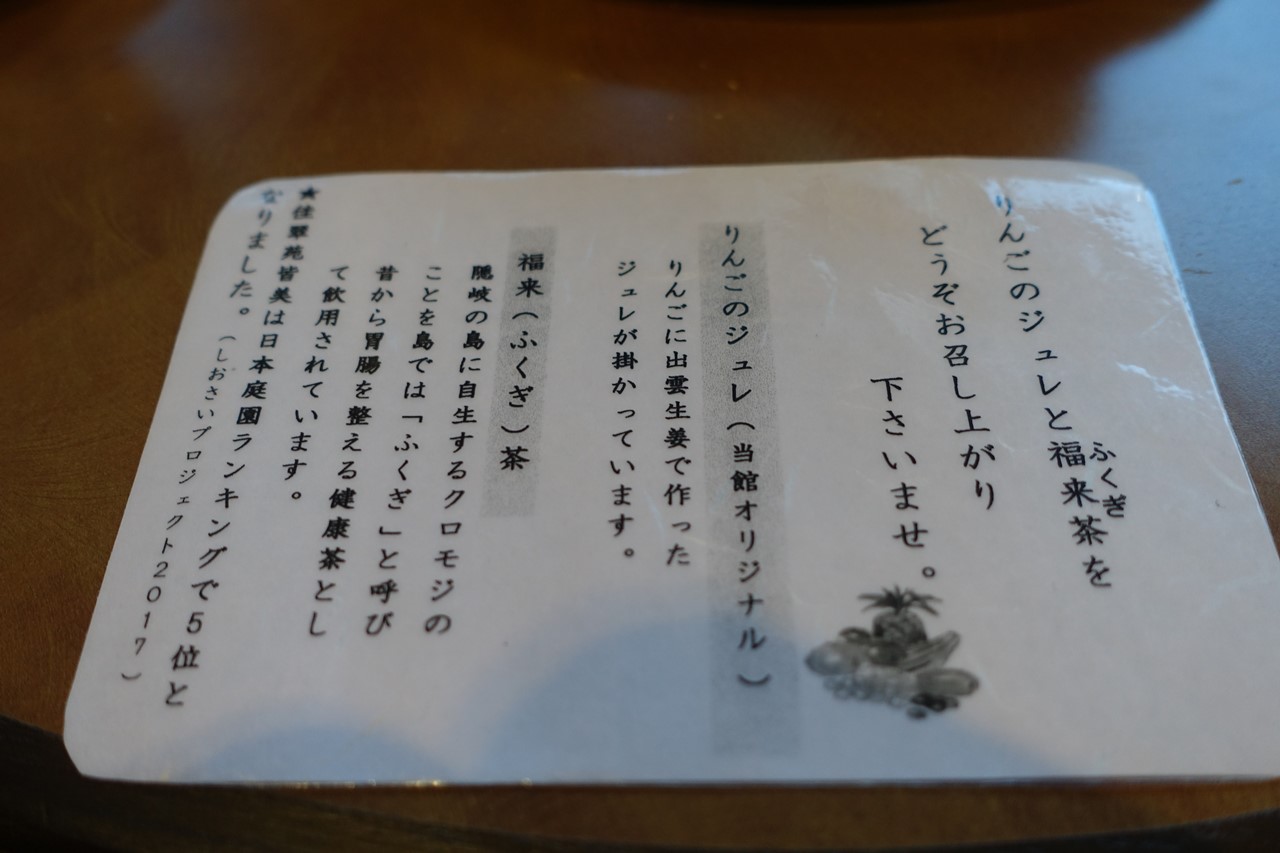 りんごのジュレと福来茶を
ふくぎ
どうぞお召し上がり
下さいませ。
りんごのジュレ(当館オリジナル)
りんごに出雲生姜で作った
ジュレが掛かっています。
福来(ふくぎ)茶
隠岐の島に自生するクロモジの
ことを島では「ふくぎ」と呼び
昔から胃腸を整える健康茶とし
て飲用されています。
★佳翠苑皆美は日本庭園ランキングで5位と
なりました。(しおさいプロジェクト2017)